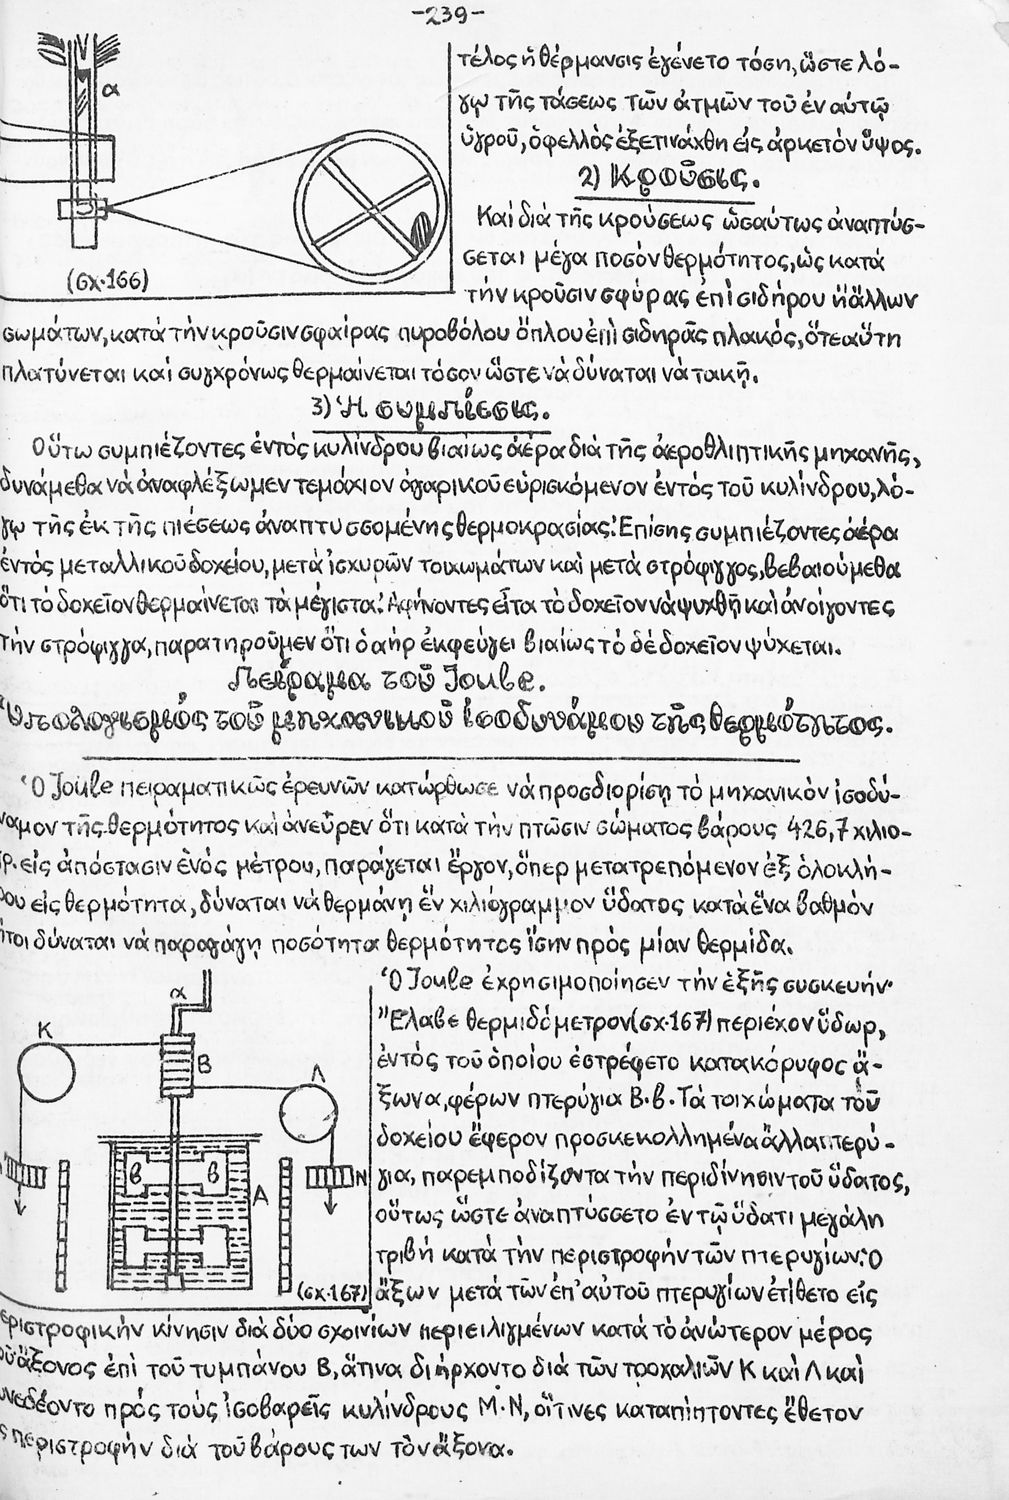 -239-
α
(σχ.166)
τέλος ἡ θέρμανσις ἐγένετο τόση, ὥστε λό-
γῳ τῆς τάσεως τῶν ἀτμῶν τοῦ ἐν αὐτῷ
ὑγροῦ, ὁ φελλὸς ἐξετινάχθη εἰς ἀρκετὸν ὕψος.
2) Κροῦσις.
Καὶ διὰ τῆς κρούσεως ὡσαύτως ἀναπτύσ-
σεται μέγα ποσὸν θερμότητος, ὡς κατὰ
τὴν κροῦσιν σφύρας ἐπὶ σιδήρου ἢ ἄλλων
σωμάτων, κατὰ τὴν κροῦσιν σφαίρας πυροβόλου ὅπλου ἐπὶ σιδηρᾶς πλακός, ὅτε αὕτη
πλατύνεται καὶ συγχρόνως θερμαίνεται τόσον ὥστε νὰ δύναται νὰ τακῇ.
3) Ἡ συμπίεσις.
Οὕτω συμπιέζοντες ἐντὸς κυλίνδρου βιαίως ἀέρα διὰ τῆς ἀεροθλιπτικῆς μηχανῆς,
δυνάμεθα νὰ ἀναφλέξωμεν τεμάχιον ἀγαρικοῦ εὑρισκόμενον ἐντὸς τοῦ κυλίνδρου, λό-
γῳ τῆς ἐκ τῆς πιέσεως ἀναπτυσσομένης θερμοκρασίας. Ἐπίσης συμπιέζοντες ἀέρα
ἐντὸς μεταλλικοῦ δοχείου, μετὰ ἰσχυρῶν τοιχωμάτων καὶ μετὰ στρόφιγγος, βεβαιούμεθα
ὅτι τὸ δοχεῖον θερμαίνεται τὰ μέγιστα. Ἀφήνοντες εἶτα τὸ δοχεῖον νὰ ψυχθῇ καὶ ἀνοίγοντες
τὴν στρόφιγγα, παρατηροῦμεν ὅτι ὁ ἀὴρ ἐκφεύγει βιαίως τὸ δὲ δοχεῖον ψύχεται.
Πείραμα τοῦ Joule.
Ὑπολογισμός τοῦ μηχανικοῦ ἰσοδυνάμου τῆς θερμότητος.
Ὁ Joule πειραματικῶς ἐρευνῶν κατώρθωσε νὰ προσδιορίσῃ τὸ μηχανικὸν ἰσοδύ-
ναμον τῆς θερμότητος καὶ ἀνεῦρεν ὅτι κατὰ τὴν πτῶσιν σώματος βάρους 426,7 χιλιο-
γρ. εἰς ἀπόστασιν ἑνὸς μέτρου, παράγεται ἔργον, ὅπερ μετατρεπόμενον ἐξ ὁλοκλή-
ρου εἰς θερμότητα, δύναται νὰ θερμάνῃ ἓν χιλιόγραμμον ὕδατος κατὰ ἕνα βαθμὸν
ἤτοι δύναται νὰ παραγάγῃ ποσότητα θερμότητος ἴσην πρὸς μίαν θερμίδα.
α
Κ
Β
Λ
β
β
Ν
Α
(σχ.167)
Ὁ Joule ἐχρησιμοποίησεν τὴν ἑξῆς συσκευήν·
Ἔλαβε θερμιδόμετρον (σχ.167) περιέχον ὕδωρ,
ἐντὸς τοῦ ὁποίου ἐστρέφετο κατακόρυφος ἄ-
ξωνα, φέρων πτερύγια Β.β. Τὰ τοιχώματα τοῦ
δοχείου ἔφερον προσκεκολλημένα ἄλλα πτερύ-
για, παρεμποδίζοντα τὴν περιδίνησιν τοῦ ὕδατος,
οὕτως ὥστε ἀνεπτύσσετο ἐν τῷ ὕδατι μεγάλη
τριβὴ κατὰ τὴν περιστροφὴν τῶν πτερυγίων. Ὁ
ἄξων μετὰ τῶν ἐπ' αὐτοῦ πτερυγίων ἐτίθετο εἰς
περιστροφικὴν κίνησιν διὰ δύο σχοινίων περιειλιγμένων κατὰ τὸ ἀνώτερον μέρος
τοῦ ἄξονος ἐπὶ τοῦ τυμπάνου Β, ἅτινα διήρχοντο διὰ τῶν τροχαλιῶν Κ καὶ Λ καὶ
συνεδέοντο πρὸς τοὺς ἰσοβαρεῖς κυλίνδρους Μ.Ν, οἵτινες καταπίπτοντες ἔθετον
περιστροφὴν διὰ τοῦ βάρους των τὸν ἄξονα.